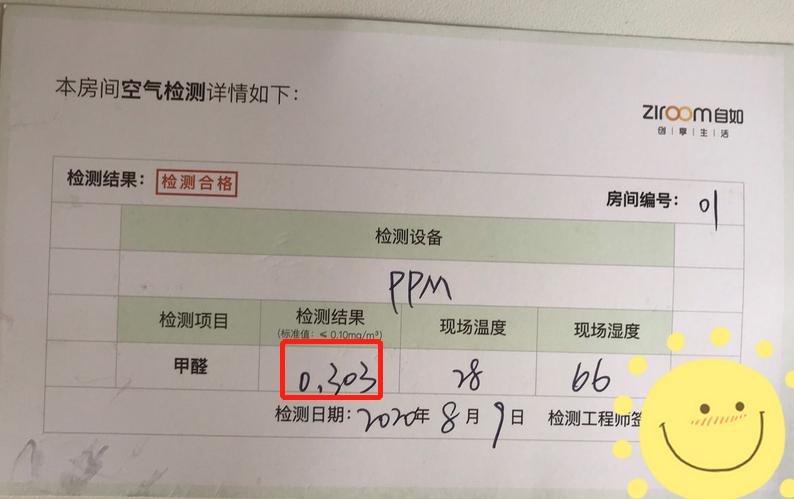 本房间空气检测详情如下：
ziroom自如
创|享|生|活
检测结果：检测合格
房间编号：01
检测设备
PPM
检测项目 检测结果 现场温度 现场湿度
(标准值：≤ 0.10mg/m³)
甲醛 0.303 28 66
检测日期：2020年8月9日 检测工程师签